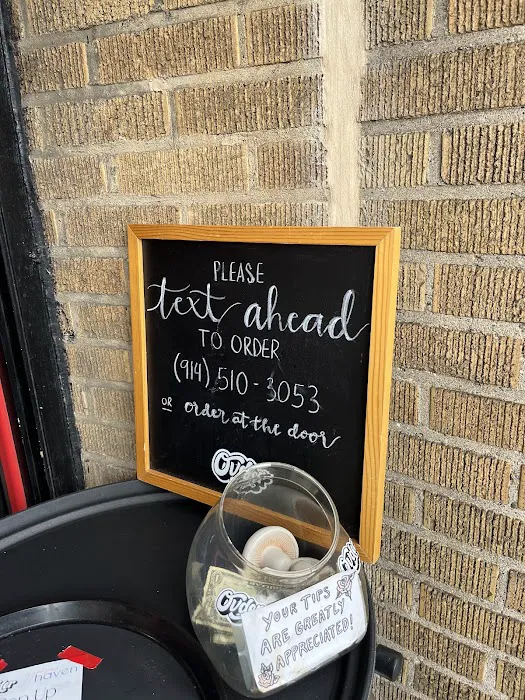 PLEASE
text ahead
TO ORDER
(914) 510-3053
OR order at the door
YOUR TIPS
ARE GREATLY
APPRECIATED!